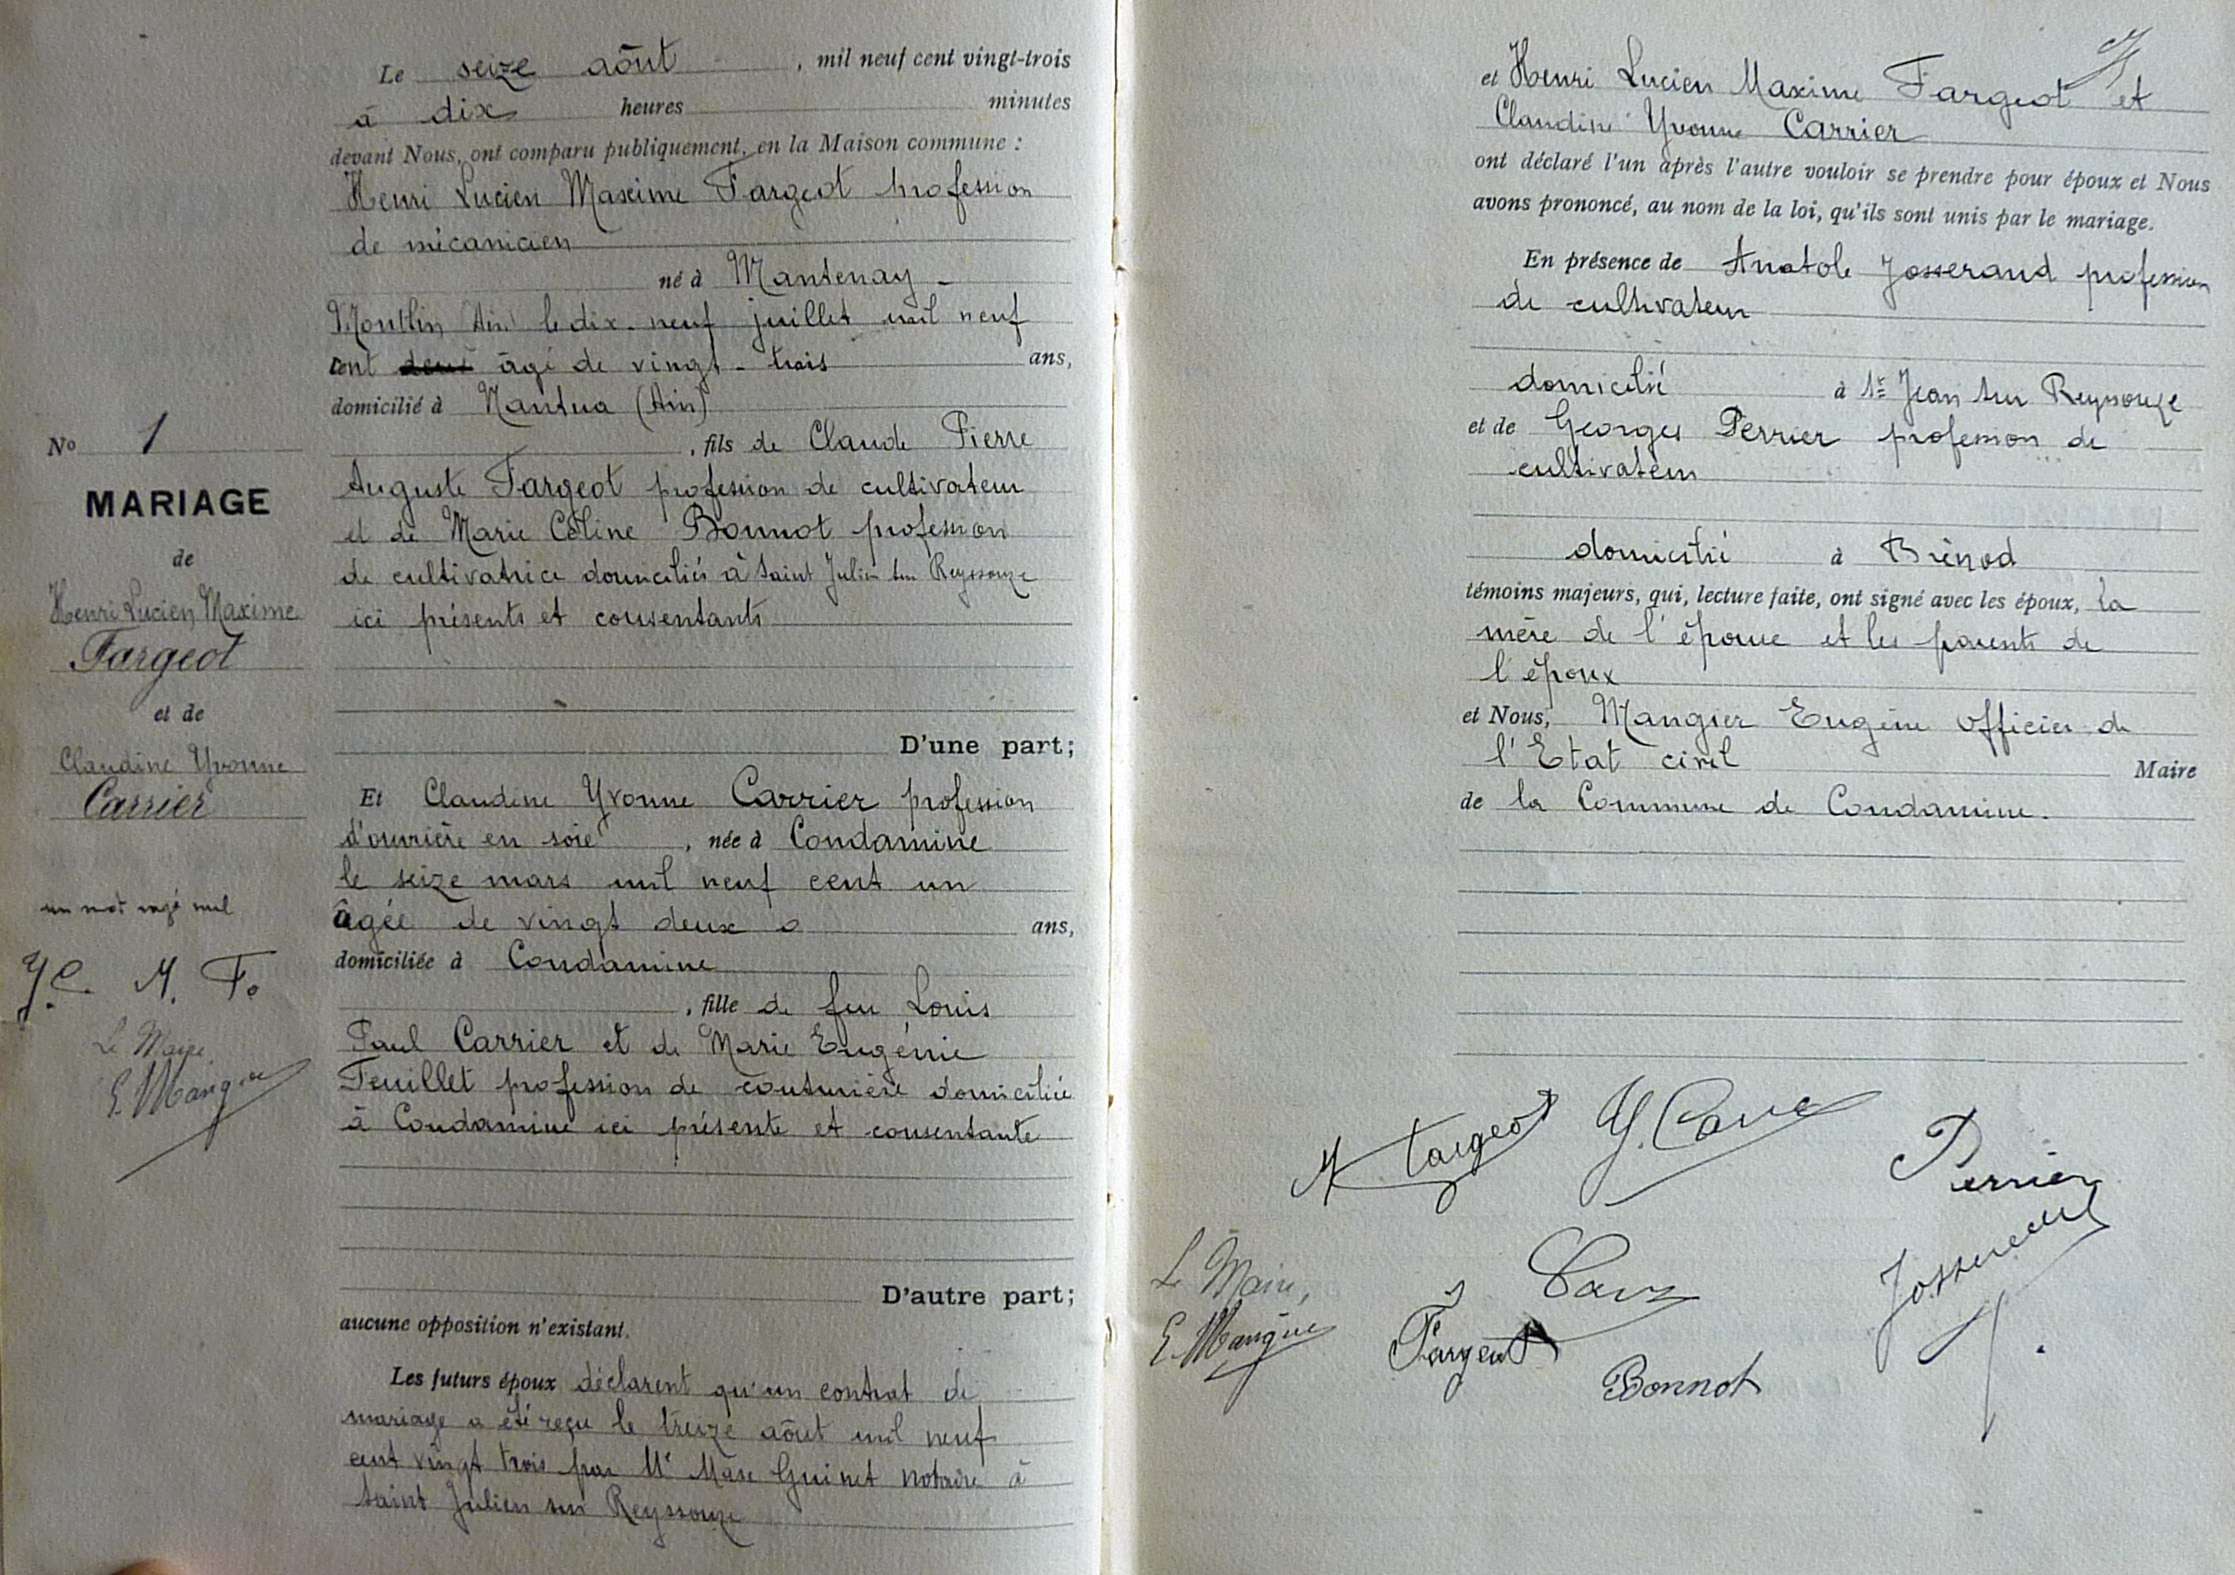 Le seize aôut , mil neuf cent vingt-trois
à dix heures minutes
devant Nous, ont comparu publiquement, en la Maison commune :
Henri Lucien Maxime Fargeot profession
de mécanicien
né à Mantenay -
Montlin (Ain) le dix-neuf juillet mil neuf
cent deux âgé de vingt-trois ans,
domicilié à Nantua (Ain)
, fils de Claude Pierre
Auguste Fargeot profession de cultivateur
et de Marie Céline Bonnot profession
de cultivatrice domiciliés à Saint Julien sur Reyssouze
ici présents et consentants
D'une part;
Et Claudine Yvonne Carrier profession
d'ouvrière en soie , née à Condamine
le seize mars mil neuf cent un
âgée de vingt deux ans,
domiciliée à Condamine
, fille de feu Louis
Paul Carrier et de Marie Eugénie
Feuillet profession de couturière domiciliée
à Condamine ici présente et consentante
D'autre part;
aucune opposition n'existant.
Les futurs époux déclarent qu'un contrat de
mariage a été reçu le treize aôut mil neuf
cent vingt trois par Me Mase Guinet notaire à
Saint Julien sur Reyssouze
No 1
MARIAGE
de
Henri Lucien Maxime
Fargeot
et de
Claudine Yvonne
Carrier
un mot rayé nul
Y.C. M. F.
Le Maire
E. Mangier
et Henri Lucien Maxime Fargeot et
Claudine Yvonne Carrier
ont déclaré l'un après l'autre vouloir se prendre pour époux et Nous
avons prononcé, au nom de la loi, qu'ils sont unis par le mariage.
En présence de Anatole Josserand profession
de cultivateur
domicilié à St Jean sur Reyssouze
et de Georges Perrier profession de
cultivateur
domicilié à Brénod
témoins majeurs, qui, lecture faite, ont signé avec les époux, la
mère de l'épouse et les parents de
l'époux
et Nous, Mangier Eugène officier de
l'Etat civil Maire
de la Commune de Condamine.
M Fargeot Y. Carrier
Perrier
Josserand
Le Maire,
E. Mangier
Fargeot
Bonnot